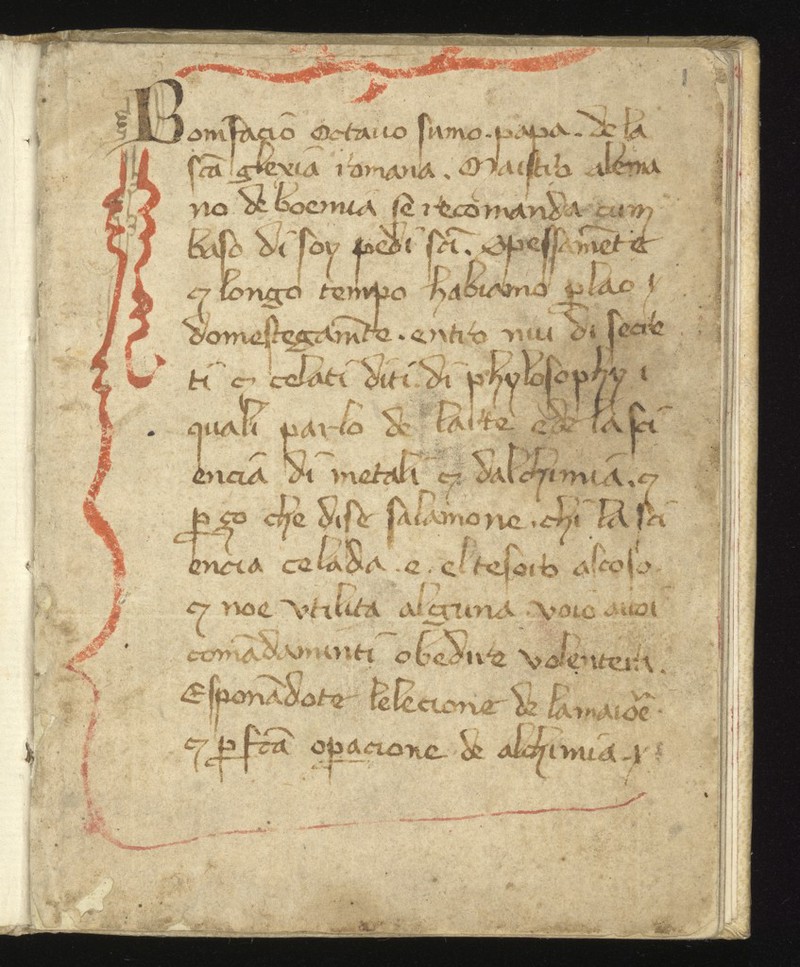 1
Bonifacio Octauo sumo. papa. de la
sca glexia romana. Maistro alema
no de boemia se recomanda cum
baso di soy pedi sci. Spessamente
⁊ longo tempo habiamo
domestegamte. entro nui di secre
ti ⁊ celati diti di phylosophy i
quali parlo de larte e de la sci
encia di metali ⁊ dalchimia. ⁊
p ço che dise salamone. chi la sci
encia celada. e. el tesoro ascoso.
⁊ noe vtilita alguna. voio a uoi
comādaminti obedire volentera.
Esponādote lelecione de la maiōe.
⁊ pfcā opacione de alchimia. y